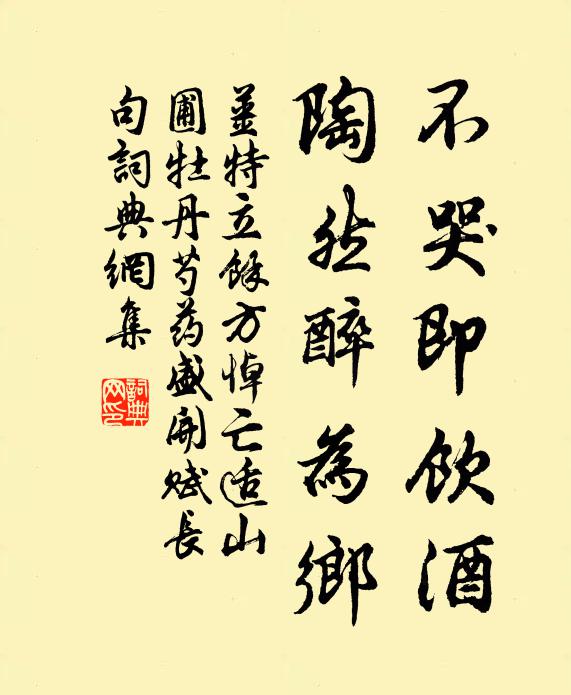 不哭即飲酒
陶然醉為鄉
姜特立餘方悼亡適山
圃牡丹芍葯盛開賦長
句詞典網集
詞典
网印